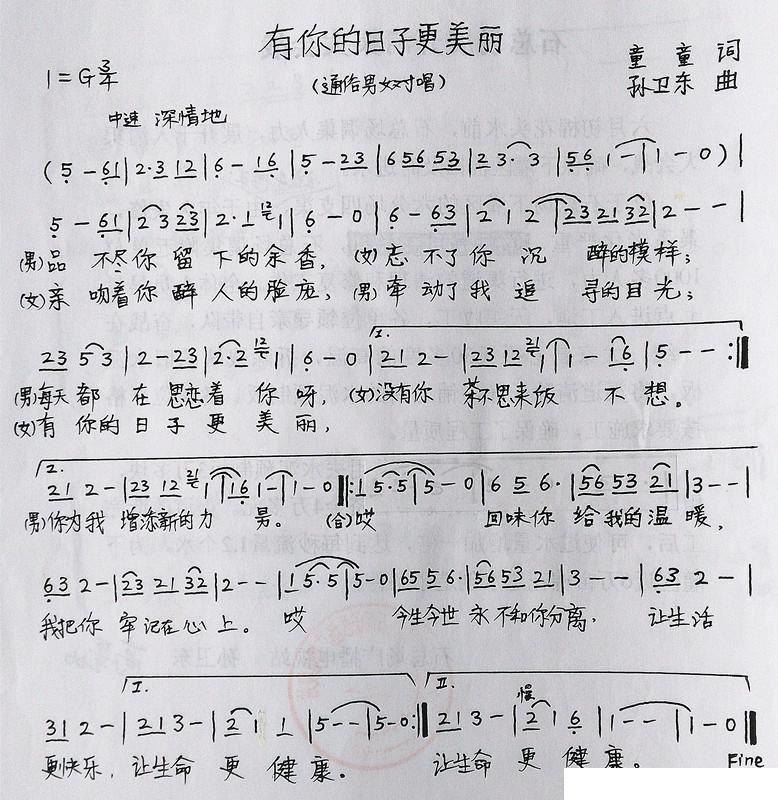 有你的日子更美丽
(通俗男女对唱)
1=G 3/4
童童 词
孙卫东 曲
中速 深情地
(5 - 61|2·3 12|6 - 16|5 - 23|656 53|2 3· 3|56 1 - |1 - 0)|
5 - 61|2 3 23|2·1 12 1|6 - 0|6 - 63|2 1 2|23 21 32|2 - -|
(男)品 不尽你 留 下的余香, (女)忘 不了你 沉 醉的模样;
(女)亲 吻着你 醉 人的脸庞; (男)牵 动了我 追 寻的目光;
I.
23 5 3|2 - 23|2·2 12 1|6 - 0|21 2 -|23 12 21 1|1 - 16|5 - - :||
(男)每天 都 在 思恋着 你 呀, (女)没有你 茶不思来饭 不 想。
(女)有 你的 日 子 更 美 丽,
2.
21 2 -|23 12 21 1|16 1 -|1 - 0||:1 5·5|5 - 0|6 5 6·|56 53 21|3 - -|
(男)你为我 增添新的力 量。 (合)哎 回味你 给我的温 暖,
63 2 -|23 21 32|2 - -|1 5·5|5 - 0|65 5 6·|56 53 21|3 - -|63 2 -|
我把你 牢记在心上。 哎 今生今世 永不和你分离, 让生活
I. II.
31 2 -|21 3 -|2 1 1|5 - -|5 - 0:||21 3 -|慢 2 1 6|1 - -|1 - 0||
更快乐, 让生命 更 健 康。 让生命 更 健 康。
Fine